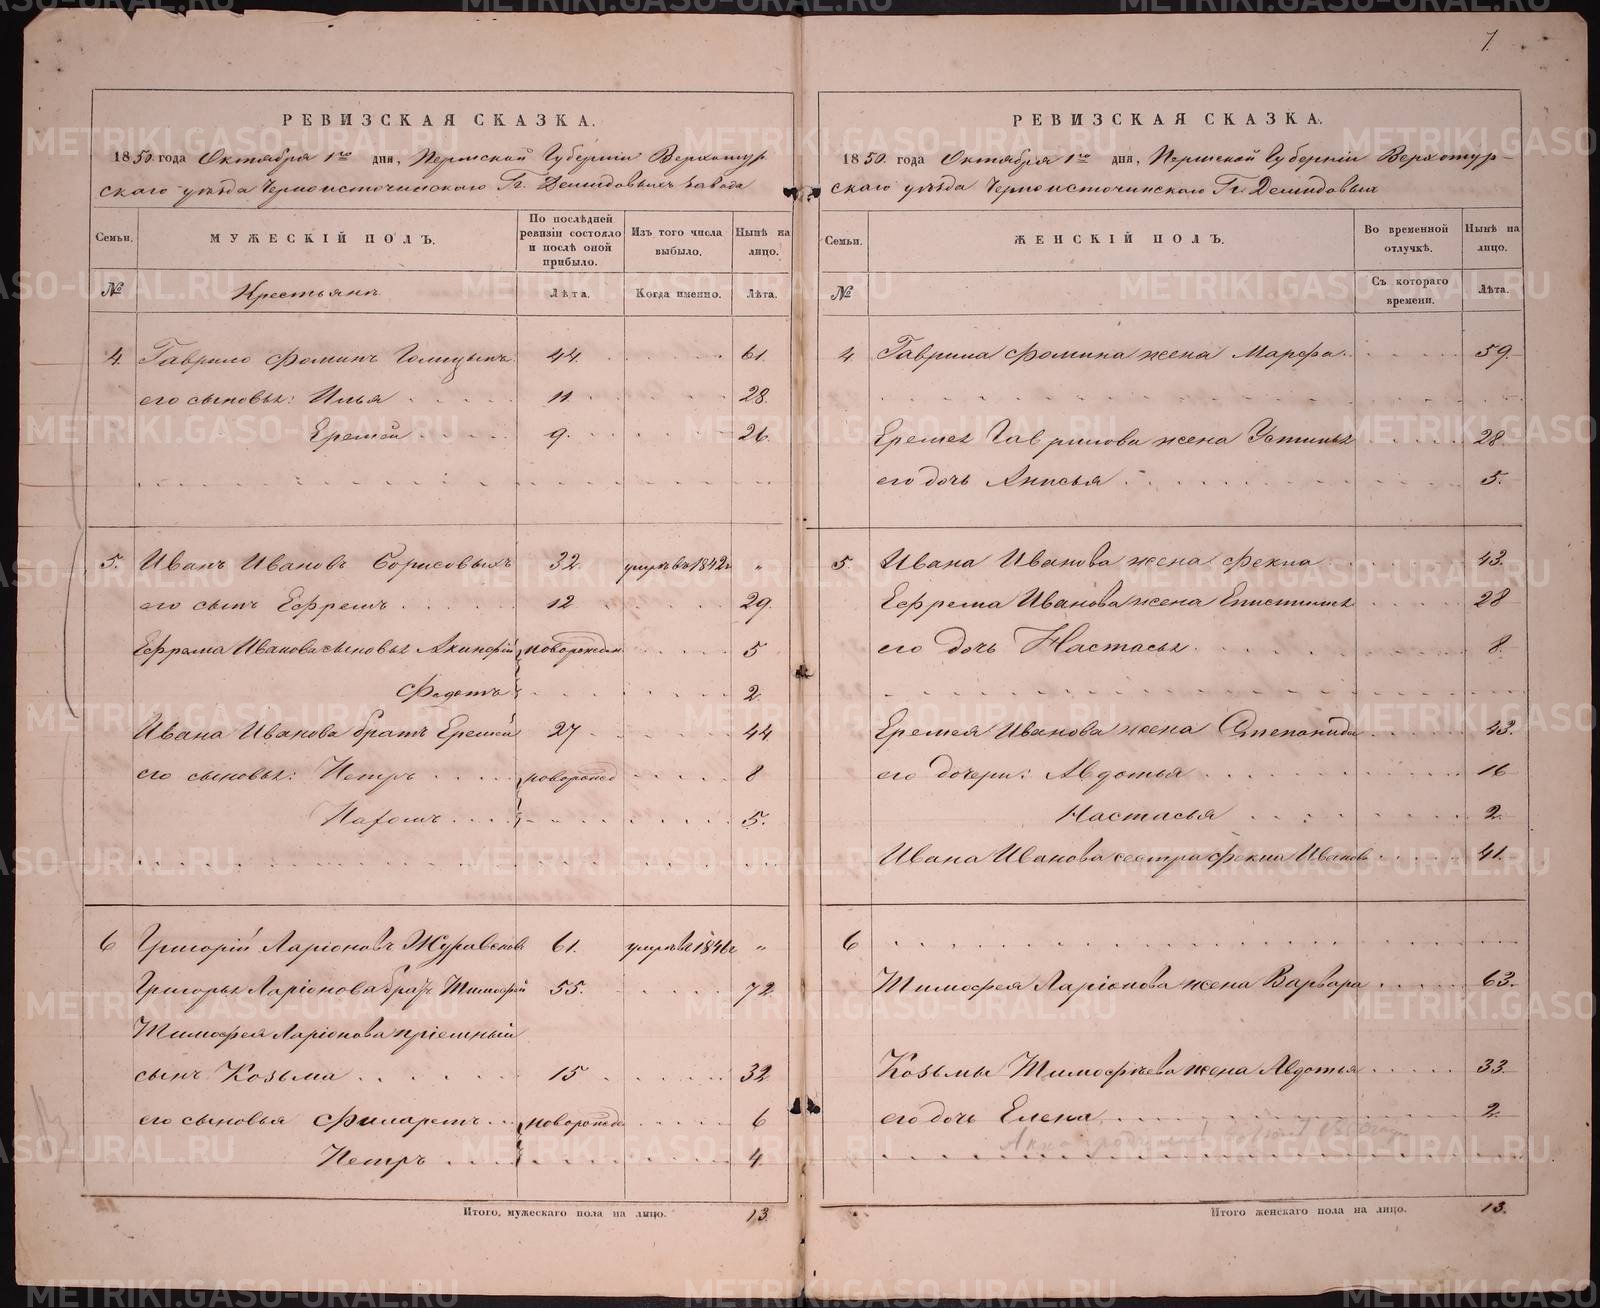 7.
РЕВИЗСКАЯ СКАЗКА.
1850 года Октября 1го дня, Пермской Губернiи Верхотур-
скаго уѣзда Черноисточинскаго Гг. Демидовыхъ завода
Семьи.
МУЖЕСКIЙ ПОЛЪ.
По послѣдней ревизiи состояло и послѣ оной прибыло.
Изъ того числа выбыло.
Нынѣ на лицо.
№ Крестьянъ Лѣта. Когда именно. Лѣта.
4. Гаврило Фоминъ Голицынъ 44. 61.
его сыновья: Илья 11 28.
Еремей 9. 26.
5. Иванъ Ивановъ Борисовыхъ 32 умеръ въ 1842г „
его сынъ Ефремъ 12 29.
Ефрема Иванова сыновья Акинфiй новорожден 5
Федотъ 2.
Ивана Иванова братъ Еремей 27 44
его сыновья: Петръ новорожд 8
Пахомъ 5.
6 Григорiй Ларiоновъ Журавлевъ 61. умеръ въ 1846г „
Григорья Ларiонова братъ Тимофей 55. 72.
Тимофея Ларiонова прiемный
сынъ Козьма 15 32
его сыновья Филаретъ новорожде 6
Петръ 4.
Итого, мужескаго пола на лицо. 13.
РЕВИЗСКАЯ СКАЗКА.
1850 года Октября 1го дня, Пермской Губернiи Верхотур-
скаго уѣзда Черноисточинскаго Гг. Демидовыхъ
Семьи.
ЖЕНСКIЙ ПОЛЪ.
Во временной отлучкѣ.
Нынѣ на лицо.
№ Съ котораго времени. Лѣта.
4 Гаврила Фомина жена Марфа 59.
Еремея Гаврилова жена Устинья 28
его дочь Анисья 5.
5. Ивана Иванова жена Фекла 43.
Ефрема Иванова жена Епистимья 28
его дочь Настасья 8.
Еремея Иванова жена Степанида 43.
его дочери: Авдотья 16
Настасья 2.
Ивана Иванова сестра Фекла Иванов 41.
6
Тимофея Ларiонова жена Варвара 63.
Козьмы Тимофѣева жена Авдотья 33.
его дочь Елена 2.
Итого женскаго пола на лицо. 13.
METRIKI.GASO-URAL.RU